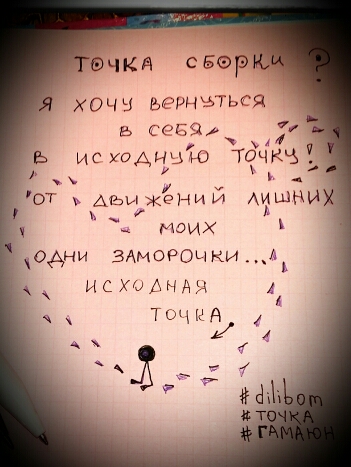 ТОЧКА СБОРКИ ?
Я ХОЧУ ВЕРНУТЬСЯ
В СЕБЯ
В ИСХОДНУЮ ТОЧКУ!
ОТ ДВИЖЕНИЙ ЛИШНИХ
МОИХ
ОДНИ ЗАМОРОЧКИ...
ИСХОДНАЯ
ТОЧКА
# dilibom
# ТОЧКА
# ГАМАЮН